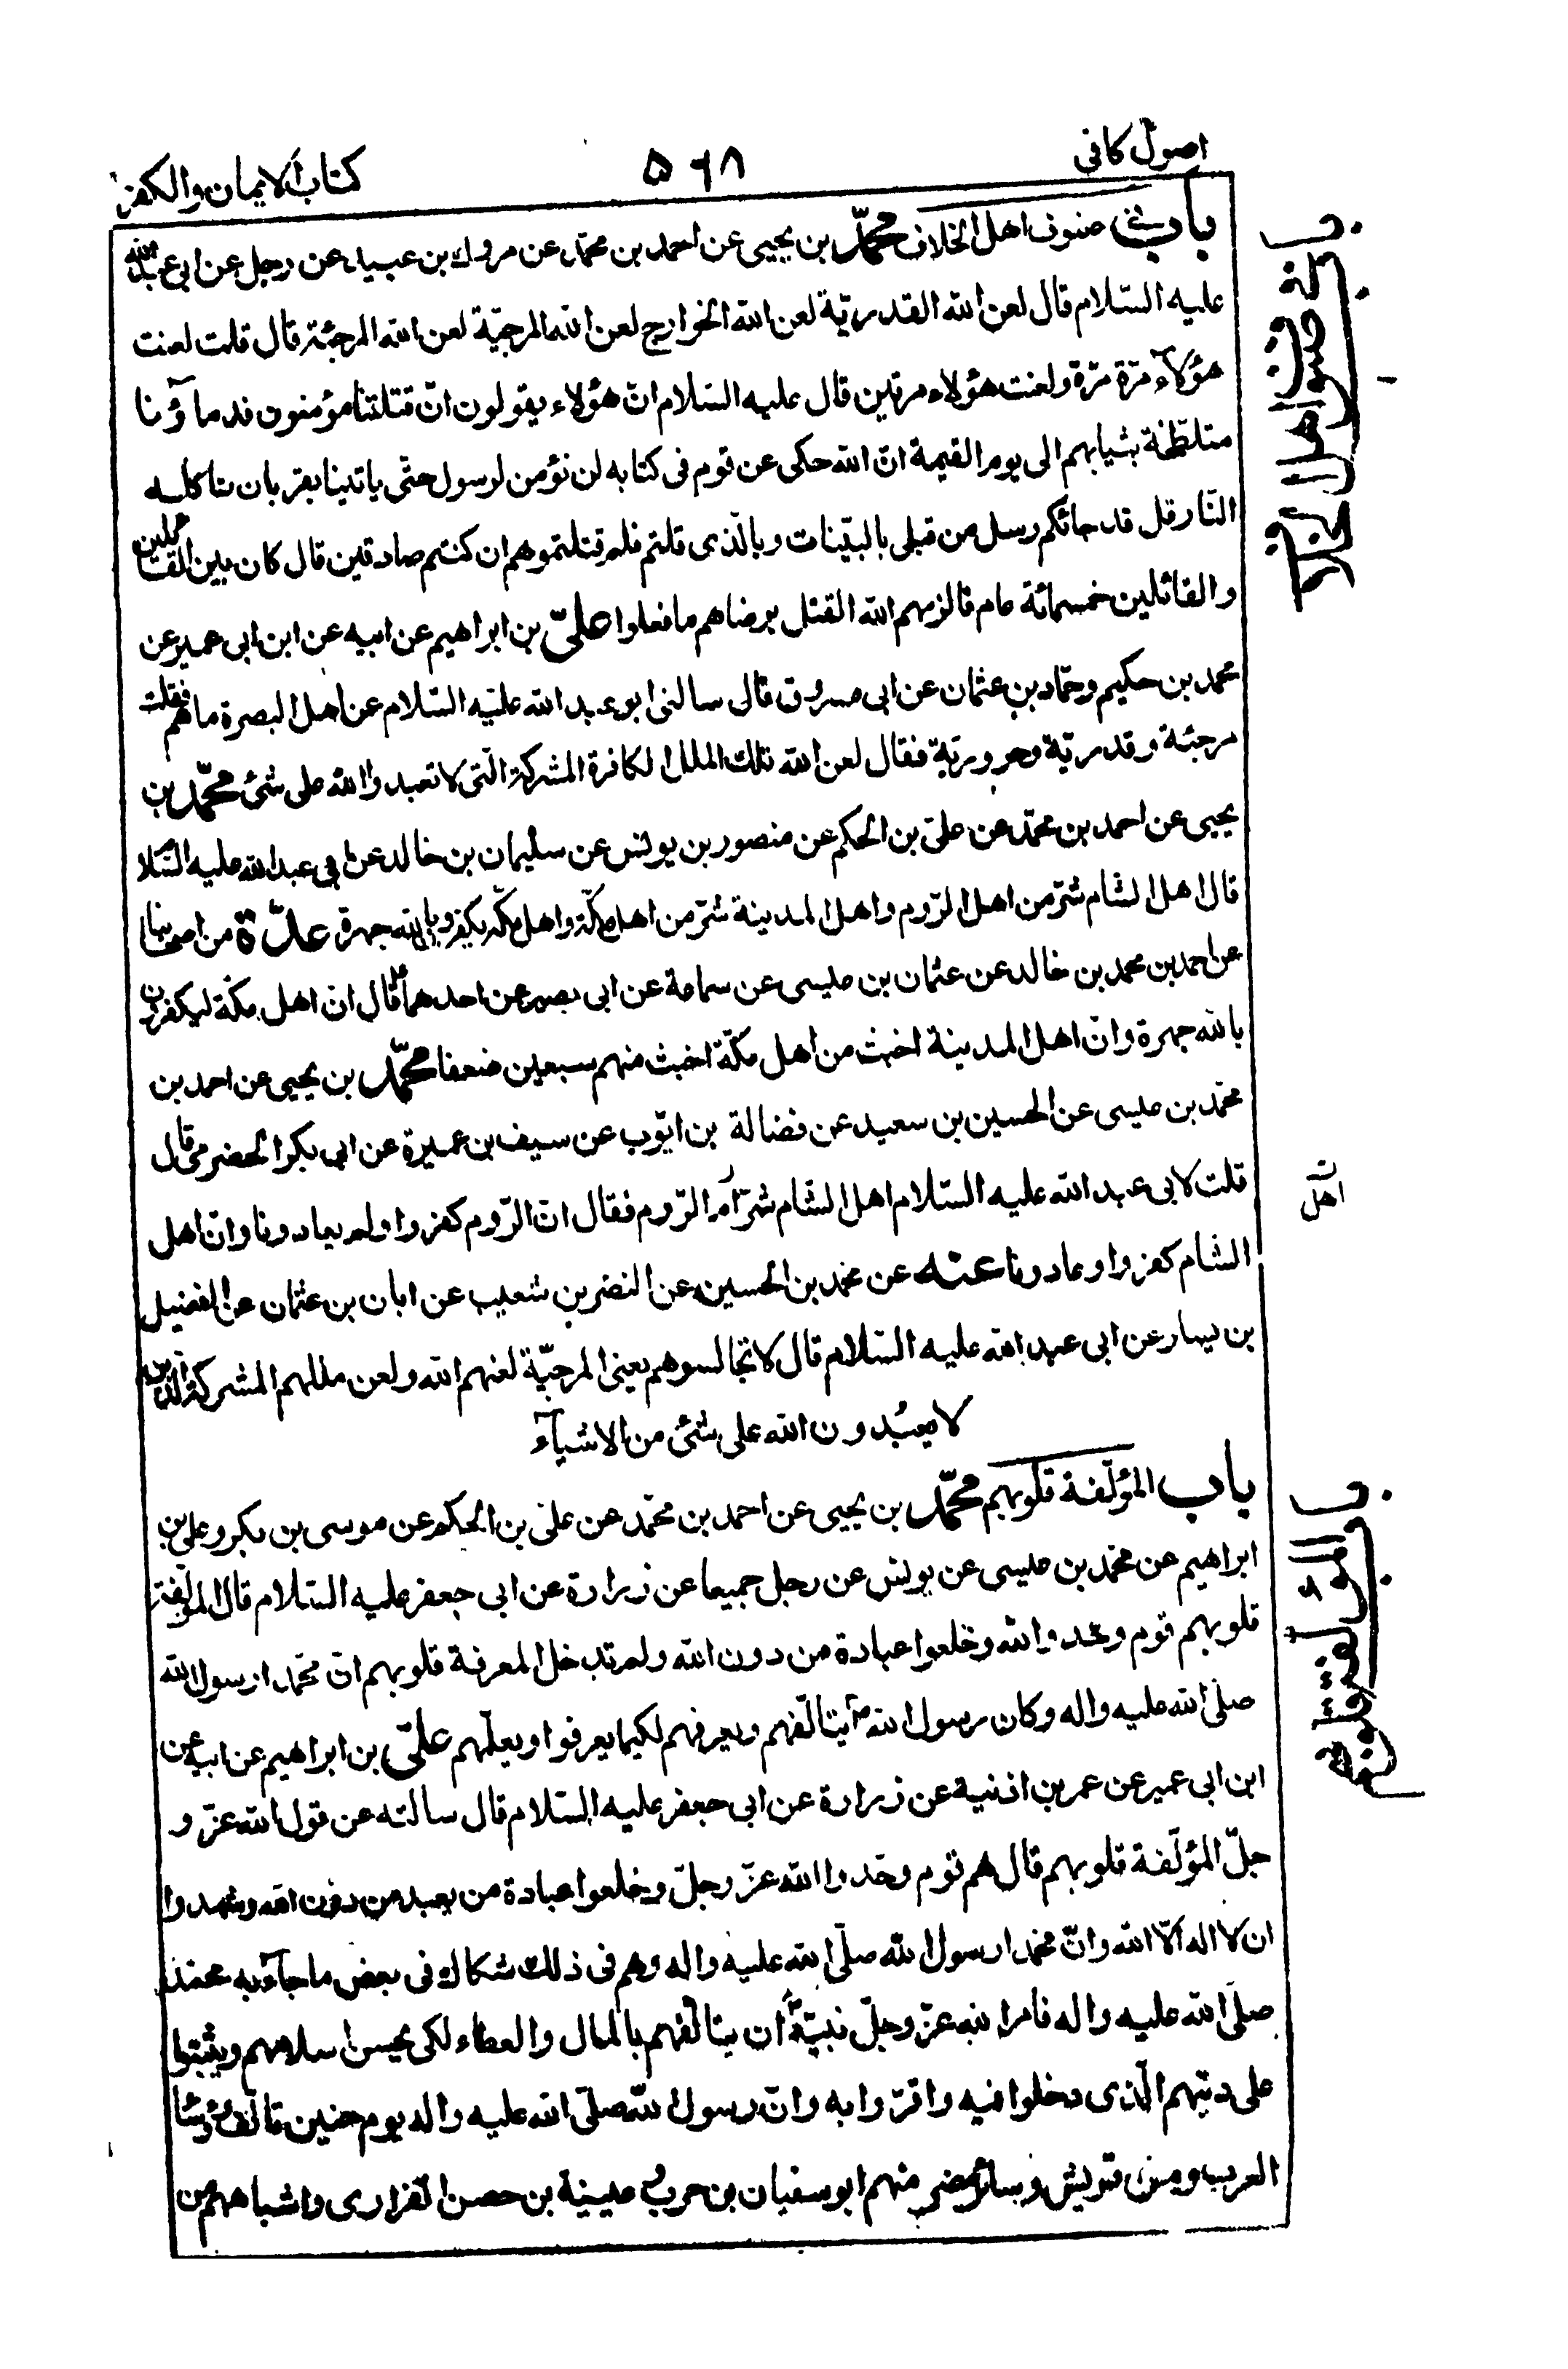 اصول کافی
۵۶۸
کتاب الایمان والکفر
باب فی صنوف اهل الخلاف محمّد بن یحیی عن احمد بن محمّد عن مروك بن عبید عن رجل عن ابی عبد الله
علیه السّلام قال لعن الله القدریّة لعن الله الخوارج لعن الله المرجئة لعن الله المرجئة قال قلت لعنت
هؤلآء مرّة مرّة ولعنت هؤلاء مرتین قال علیه السّلام انّ هؤلاء یقولون انّ قتلتنا مؤمنون فدمآؤنا
متلطّخة بثیابهم الی یوم القیمة انّ الله حکی عن قوم فی کتابه لن نؤمن لرسول حتّی یاتینا بقربان تاکله
النّار قل قد جائکم رسل من قبلی بالبیّنات وبالّذی قلتم فلم قتلتموهم ان کنتم صادقین قال کان بین القاتلین
والقائلین خمسمائة عام فالزمهم الله القتل برضاهم ما فعلوا علیّ بن ابراهیم عن ابیه عن ابن ابی عمیر عن
محمد بن حکیم وحمّاد بن عثمان عن ابی مسروق قال سالنی ابو عبد الله علیه السّلام عن اهل البصرة ما هم فقلت
مرجئة وقدریّة وحروریّة فقال لعن الله تلك الملل الکافرة المشرکة الّتی لا تعبد والله علی شئ محمّد بن
یحیی عن احمد بن محمّد عن علیّ بن الحکم عن منصور بن یونس عن سلیمان بن خالد عن ابی عبد الله علیه السّلا
قال اهل الشام شرّ من اهل الرّوم واهل المدینة شرّ من اهل مکّة واهل مکّة یکفرون بالله جهرة عدّة من اصحابنا
عن احمد بن محمد بن خالد عن عثمان بن عیسی عن سماعة عن ابی بصیر عن احدهما قال انّ اهل مکّة لیکفرون
بالله جهرة وانّ اهل المدینة اخبث من اهل مکّة اخبث منهم سبعین ضعفا محمّد بن یحیی عن احمد بن
محمّد بن عیسی عن الحسین بن سعید عن فضالة بن ایّوب عن سیف بن عمیرة عن ابی بکر الحضرمی قال
قلت لابی عبد الله علیه السّلام اهل الشام شرّ ام الرّوم فقال انّ الرّوم کفروا ولم یعادونا وانّ اهل
الشام کفروا وعادونا عنه عن محمّد بن الحسین عن النضر بن شعیب عن ابان بن عثمان عن الفضیل
بن یسار عن ابی عبد الله علیه السّلام قال لا تجالسوهم یعنی المرجئة لعنهم الله ولعن مللهم المشرکة الّذین
لا یعبُدون الله علی شئ من الاشیآء
باب المؤلّفة قلوبهم محمّد بن یحیی عن احمد بن محمّد عن علیّ بن الحکم عن موسی بن بکر وعلی بن
ابراهیم عن محمّد بن عیسی عن یونس عن رجل جمیعا عن زرارة عن ابی جعفر علیه السّلام قال المؤلّفة
قلوبهم قوم وحدوا الله وخلعوا عبادة من دون الله ولم تدخل المعرفة قلوبهم انّ محمّدا رسول الله
صلّی الله علیه واله وکان رسول الله ص یتالّفهم ویعرفهم لکیما یعرفوا ویعلّمهم علیّ بن ابراهیم عن ابیه عن
ابن ابی عمیر عن عمر بن اذنیة عن زرارة عن ابی جعفر علیه السّلام قال سالته عن قول الله عزّ و
جلّ المؤلّفة قلوبهم قال هم قوم وحّدوا الله عزّ وجلّ وخلعوا عبادة من یعبد من دون الله وشهدوا
ان لا اله الّا الله وانّ محمّدا رسول الله صلّی الله علیه واله وهم فی ذلك شکاك فی بعض ما جآء به محمّد
صلّی الله علیه واله فامر الله عزّ وجلّ نبیّه ان یتالّفهم بالمال والعطاء لکی یحسن اسلامهم ویثبتوا
علی دینهم الّذی دخلوا فیه واقرّوا به وانّ رسول الله صلّی الله علیه واله یوم حنین تالّف رؤسا
العرب ومن قریش وسائر مضر منهم ابو سفیان بن حرب وعیینة بن حصن الفزاری واشباههم من
باب فی صنوف اهل الخلاف
اهل
باب المؤلفة قلوبهم